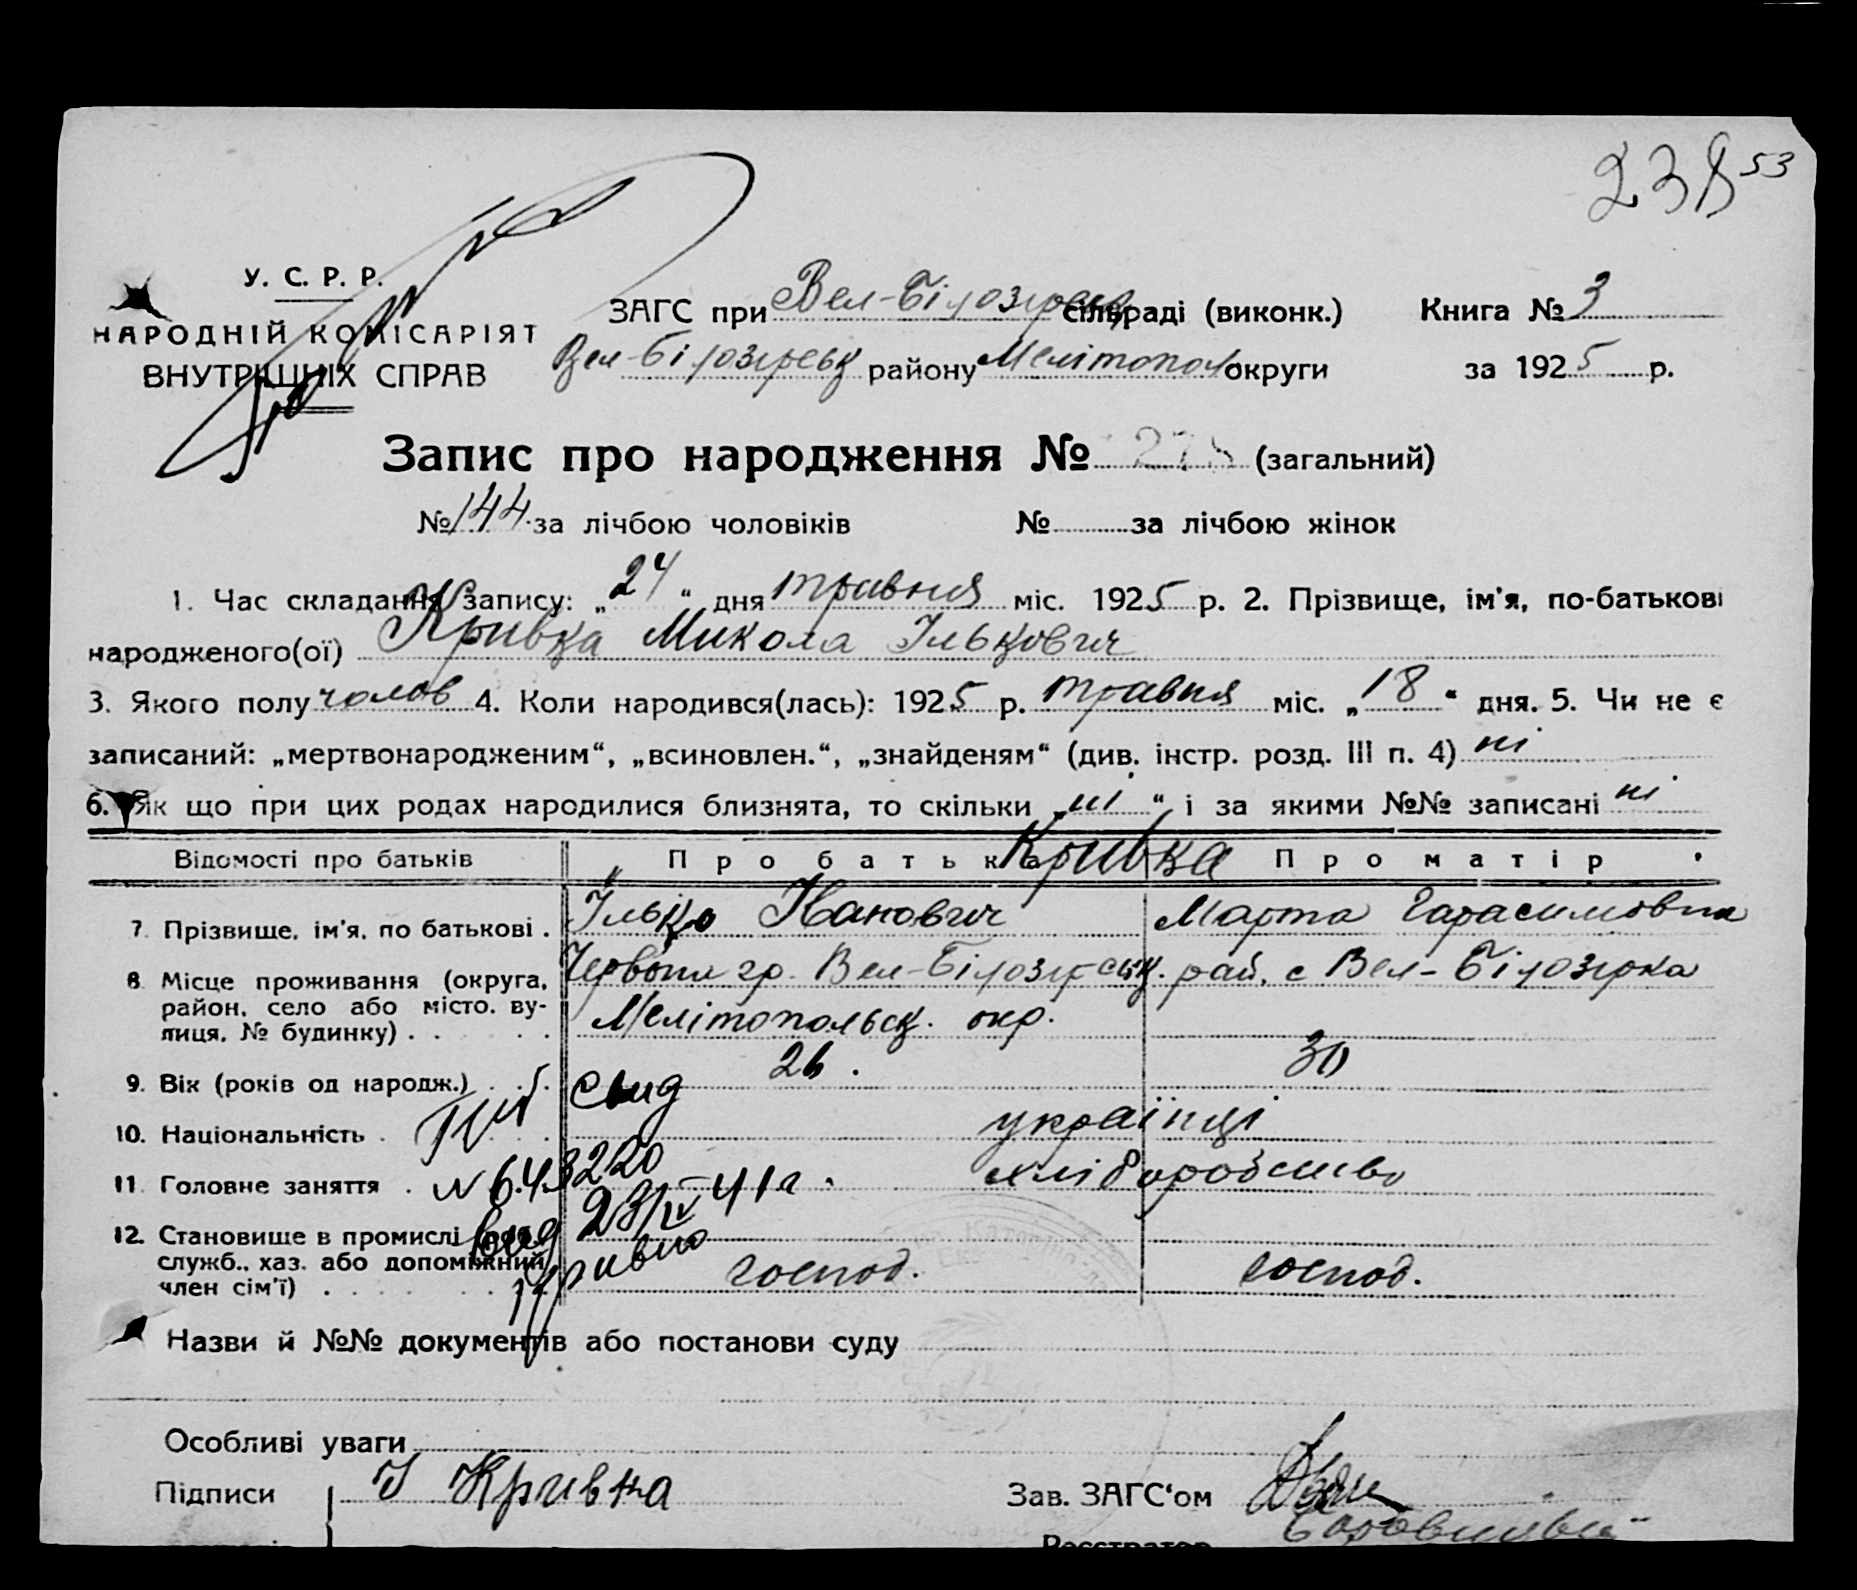 53
У. С. Р. Р.
НАРОДНІЙ КОМІСАРІЯТ
ВНУТРІШНІХ СПРАВ
ЗАГС при Вел-Білозірськ сільраді (виконк.) Книга № 3
Вел-Білозірськ району Мелітопол округи за 1925 р.
Запис про народження № 278 (загальний)
№ 144 за лічбою чоловіків № за лічбою жінок
1. Час складання запису: „24“ дня травня міс. 1925 р. 2. Прізвище, ім'я, по-батькові
народженого(ої) Кривка Микола Ількович
3. Якого полу чолов 4. Коли народився(лась): 1925 р. травня міс. „18“ дня. 5. Чи не є
записаний: „мертвонародженим“, „всиновлен.“, „знайденям“ (див. інстр. розд. III п. 4) ні
6. Як що при цих родах народилися близнята, то скільки „ні“, і за якими №№ записані ні
Відомості про батьків Про батька Кривка Про матір
7. Прізвище, ім'я, по батькові . Ілько Іванович Марта Гарасимовна
8. Місце проживання (округа, Вел-Білозірськ. рай. с Вел-Білозірка
район, село або місто, ву- Мелітопольськ. окр.
лиця, № будинку) . . . .
9. Вік (років од народж.) . . . 26. 30
10. Національність . українці
11. Головне заняття . хліборобство
N 643220
41г.
12. Становище в промислі
служб., хаз. або допоміжний господ. господ.
член сім'ї) . . . .
Назви й №№ документів або постанови суду
Особливі уваги
Підписи І Кривка Зав. ЗАГС‘ом
Реєстратор